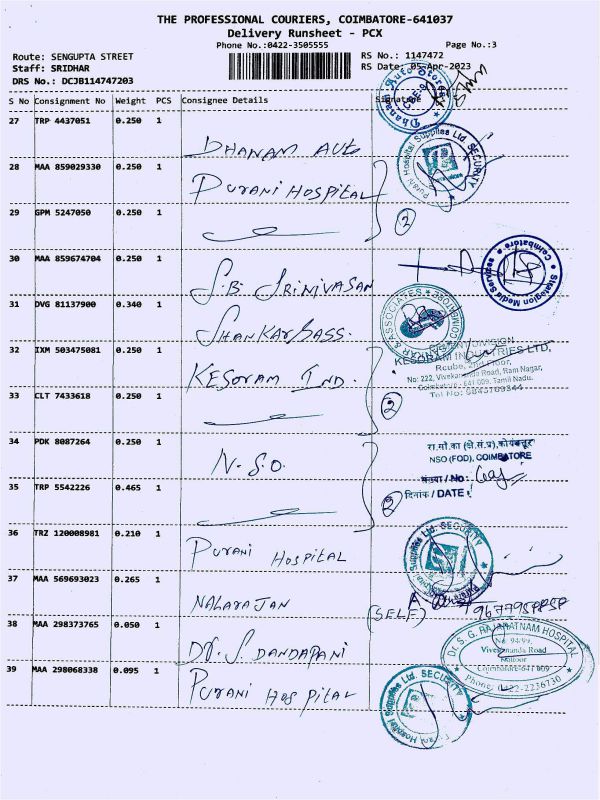 THE PROFESSIONAL COURIERS, COIMBATORE-641037
Delivery Runsheet - PCX
Phone No.:0422-3505555 Page No.:3
Route: SENGUPTA STREET RS No.: 1147472
Staff: SRIDHAR RS Date: 05-Apr-2023
DRS No.: DCJB114747203
S No Consignment No Weight PCS Consignee Details Signature
27 TRP 4437051 0.250 1
DHANAM AUTO
28 MAA 859029330 0.250 1
PURANI HOSPITAL
29 GPM 5247050 0.250 1
2
30 MAA 859674704 0.250 1
S.B. SRINIVASAN
31 DVG 81137900 0.340 1
SHANKAR & ASS.
32 IXM 503475081 0.250 1
KESORAM IND.
KESORAM INDUSTRIES LTD,
No: 222, Vivekananda Road, Ram Nagar,
Coimbatore - 641 009. Tamil Nadu.
33 CLT 7433618 0.250 1
2
34 PDK 8087264 0.250 1
N.S.O.
रा.सां.का (क्षे.सं.प्र), कोयंबत्तूर
NSO (FOD), COIMBATORE
संख्या / No:
35 TRP 5542226 0.465 1
2
दिनांक / DATE :
36 TRZ 120008981 0.210 1
PURANI HOSPITAL
Purani Hospital Supplies Ltd. SECURITY
37 MAA 569693023 0.265 1
NALARAJAN
(SELF)
38 MAA 298373765 0.050 1
DR. S. DANDAPANI
Dr. S. G. RAJARATNAM HOSPITAL
No. 94/99,
Vivekananda Road
Coimbatore-641 009
Phone: 0422-2236730
39 MAA 298068338 0.095 1
PURANI HOSPITAL
Purani Hospital Supplies Ltd. SECURITY